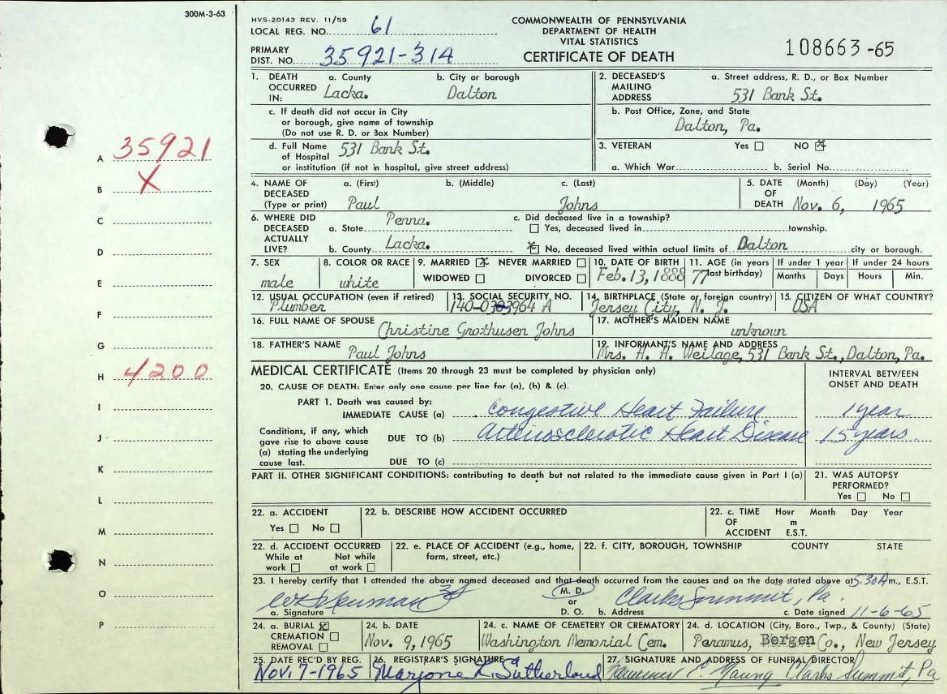 300M-3-63
HVS-20143 REV. 11/59
LOCAL REG. NO. 61
PRIMARY
DIST. NO. 35921-314
COMMONWEALTH OF PENNSYLVANIA
DEPARTMENT OF HEALTH
VITAL STATISTICS
CERTIFICATE OF DEATH
108663-65
A 35921
B X
C
D
E
F
G
H 4200
I
J
K
L
M
N
O
P
1. DEATH OCCURRED IN:
a. County Lacka.
b. City or borough Dalton
c. If death did not occur in City
or borough, give name of township
(Do not use R. D. or Box Number)
d. Full Name of Hospital 531 Bank St.
or institution (if not in hospital, give street address)
2. DECEASED'S MAILING ADDRESS
a. Street address, R. D., or Box Number
531 Bank St.
b. Post Office, Zone, and State
Dalton, Pa.
3. VETERAN Yes NO X
a. Which War b. Serial No.
4. NAME OF DECEASED (Type or print)
a. (First) b. (Middle) c. (Last)
Paul Johns
5. DATE OF DEATH (Month) (Day) (Year)
Nov. 6, 1965
6. WHERE DID DECEASED ACTUALLY LIVE?
a. State Penna.
b. County Lacka.
c. Did deceased live in a township?
Yes, deceased lived in township.
X No, deceased lived within actual limits of Dalton city or borough.
7. SEX male
8. COLOR OR RACE white
9. MARRIED X NEVER MARRIED
WIDOWED DIVORCED
10. DATE OF BIRTH Feb. 13, 1888
11. AGE (in years last birthday) 77
If under 1 year Months Days
If under 24 hours Hours Min.
12. USUAL OCCUPATION (even if retired) Plumber
13. SOCIAL SECURITY NO.
14. BIRTHPLACE (State or foreign country) Jersey City, N. J.
15. CITIZEN OF WHAT COUNTRY? USA
16. FULL NAME OF SPOUSE Christine Grothusen Johns
17. MOTHER'S MAIDEN NAME unknown
18. FATHER'S NAME Paul Johns
19. INFORMANT'S NAME AND ADDRESS
Mrs. H. A. Weilage, 531 Bank St., Dalton, Pa.
MEDICAL CERTIFICATE (Items 20 through 23 must be completed by physician only)
INTERVAL BETWEEN ONSET AND DEATH
20. CAUSE OF DEATH: Enter only one cause per line for (a), (b) & (c).
PART 1. Death was caused by:
IMMEDIATE CAUSE (a) Congestive Heart Failure 1 year
Conditions, if any, which
gave rise to above cause
(a) stating the underlying
cause last.
DUE TO (b) Arteriosclerotic Heart Disease 15 years
DUE TO (c)
PART II. OTHER SIGNIFICANT CONDITIONS: contributing to death but not related to the immediate cause given in Part I (a)
21. WAS AUTOPSY PERFORMED?
Yes No
22. a. ACCIDENT
Yes No
22. b. DESCRIBE HOW ACCIDENT OCCURRED
22. c. TIME OF ACCIDENT Hour Month Day Year
m
E.S.T.
22. d. ACCIDENT OCCURRED
While at work Not while at work
22. e. PLACE OF ACCIDENT (e.g., home, farm, street, etc.)
22. f. CITY, BOROUGH, TOWNSHIP COUNTY STATE
23. I hereby certify that I attended the above named deceased and that death occurred from the causes and on the date stated above at 5:30 A m., E.S.T.
M. D.
or
D. O.
Clarks Summit, Pa.
a. Signature b. Address c. Date signed 11-6-65
24. a. BURIAL X
CREMATION
REMOVAL
24. b. DATE
Nov. 9, 1965
24. c. NAME OF CEMETERY OR CREMATORY
Washington Memorial Cem.
24. d. LOCATION (City, Boro., Twp., & County) (State)
Paramus, Bergen Co., New Jersey
25. DATE REC'D BY REG. Nov. 7-1965
26. REGISTRAR'S SIGNATURE Marjorie L. Sutherland
27. SIGNATURE AND ADDRESS OF FUNERAL DIRECTOR
Clarks Summit, Pa